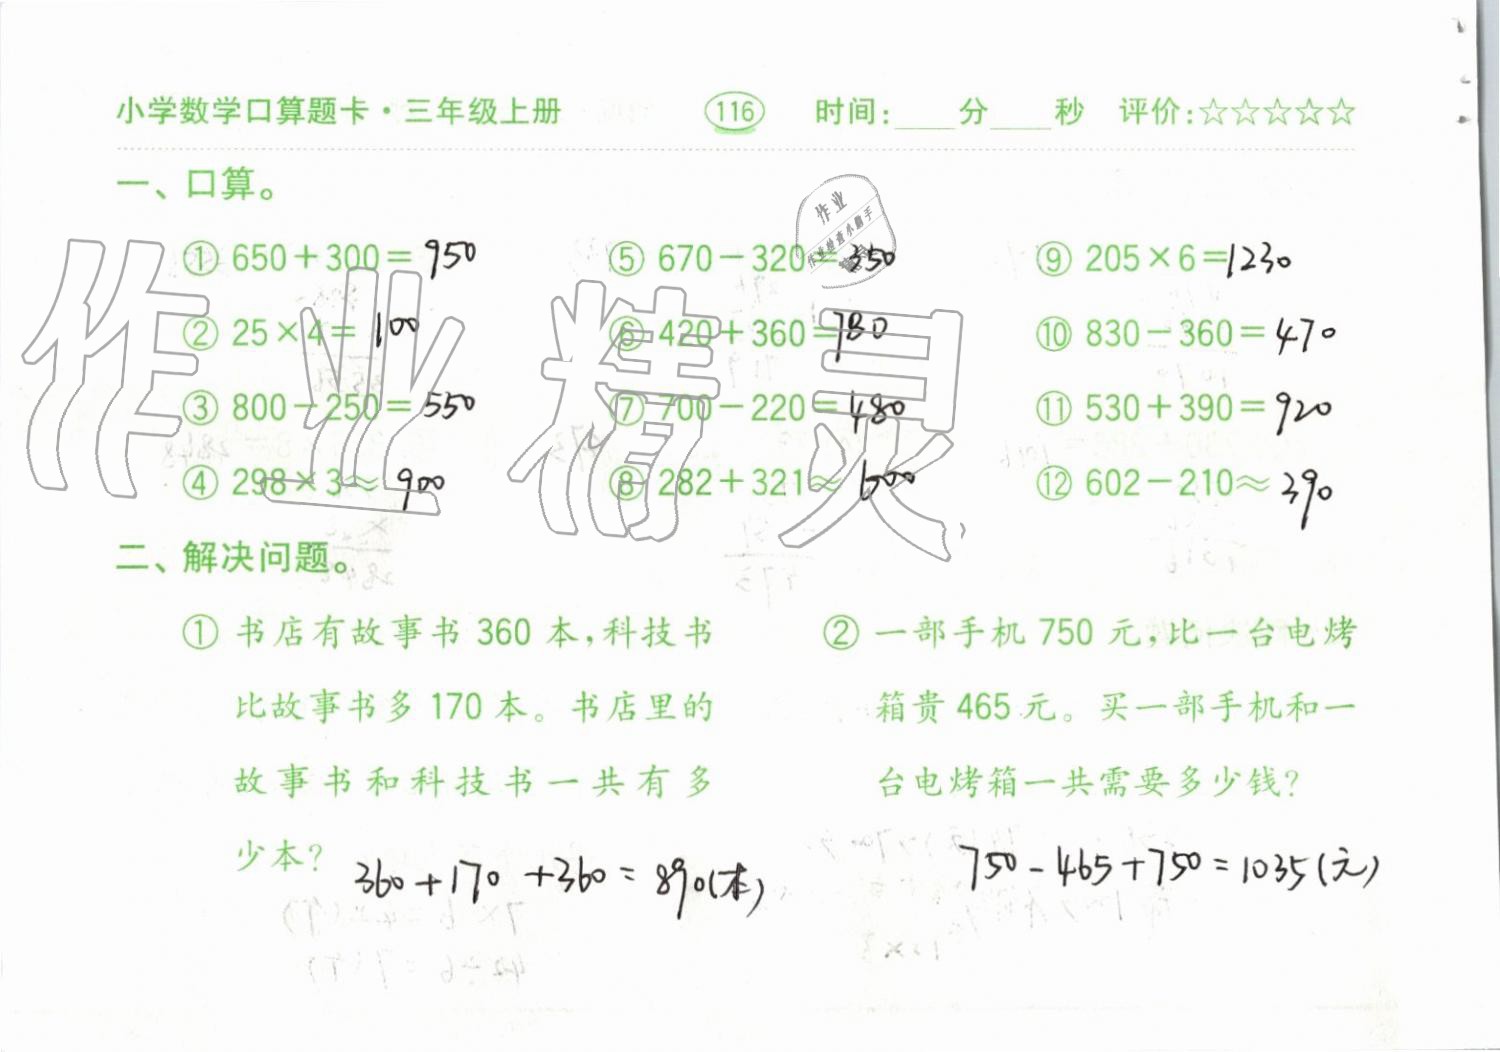 小学数学口算题卡·三年级上册 116 时间:____分____秒 评价:☆☆☆☆☆
一、口算。
① 650+300=950 ⑤ 670-320=350 ⑨ 205×6=1230
② 25×4=100 ⑥ 420+360=780 ⑩ 830-360=470
③ 800-250=550 ⑦ 700-220=480 ⑪ 530+390=920
④ 298×3≈900 ⑧ 282+321≈600 ⑫ 602-210≈390
作业精灵
作业
作业检查小助手
二、解决问题。
① 书店有故事书 360 本,科技书
比故事书多 170 本。书店里的
故事书和科技书一共有多
少本?
360+170+360=890(本)
② 一部手机 750 元,比一台电烤
箱贵 465 元。买一部手机和一
台电烤箱一共需要多少钱?
750-465+750=1035(元)